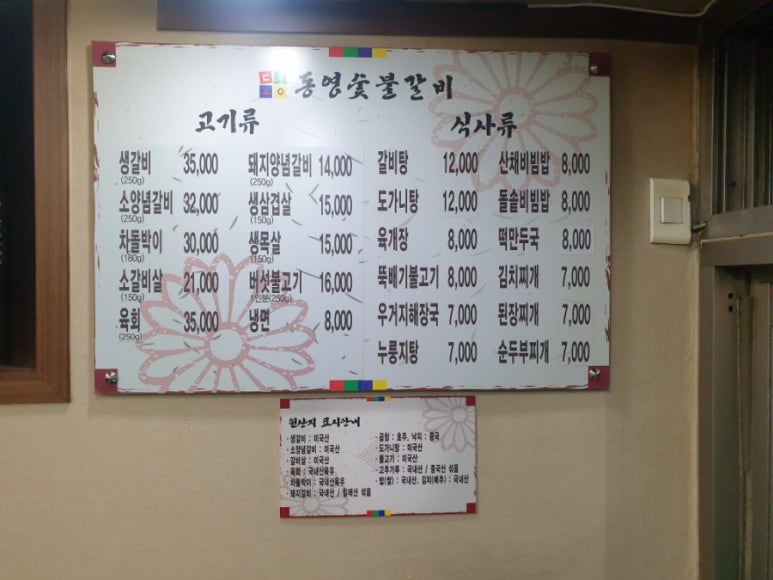 동영숯불갈비
고기류
생갈비 35,000
(250g)
소양념갈비 32,000
(250g)
차돌박이 30,000
(180g)
소갈비살 21,000
(150g)
육회 35,000
(250g)
돼지양념갈비 14,000
(250g)
생삼겹살 15,000
(150g)
생목살 15,000
(150g)
버섯불고기 16,000
1인분(250g)
냉면 8,000
식사류
갈비탕 12,000
도가니탕 12,000
육개장 8,000
뚝배기불고기 8,000
우거지해장국 7,000
누룽지탕 7,000
산채비빔밥 8,000
돌솥비빔밥 8,000
떡만두국 8,000
김치찌개 7,000
된장찌개 7,000
순두부찌개 7,000
원산지 표지안내
· 생갈비 : 미국산
· 소양념갈비 : 미국산
· 갈비살 : 미국산
· 육회 : 국내산육우
· 차돌박이 : 국내산육우
· 돼지갈비 : 국내산 / 칠레산 섞음
· 곱창 : 호주, 낙지 : 중국
· 도가니탕 : 미국산
· 불고기 : 미국산
· 고추가루 : 국내산 / 중국산 섞음
· 밥(쌀) : 국내산, 김치(배추) : 국내산